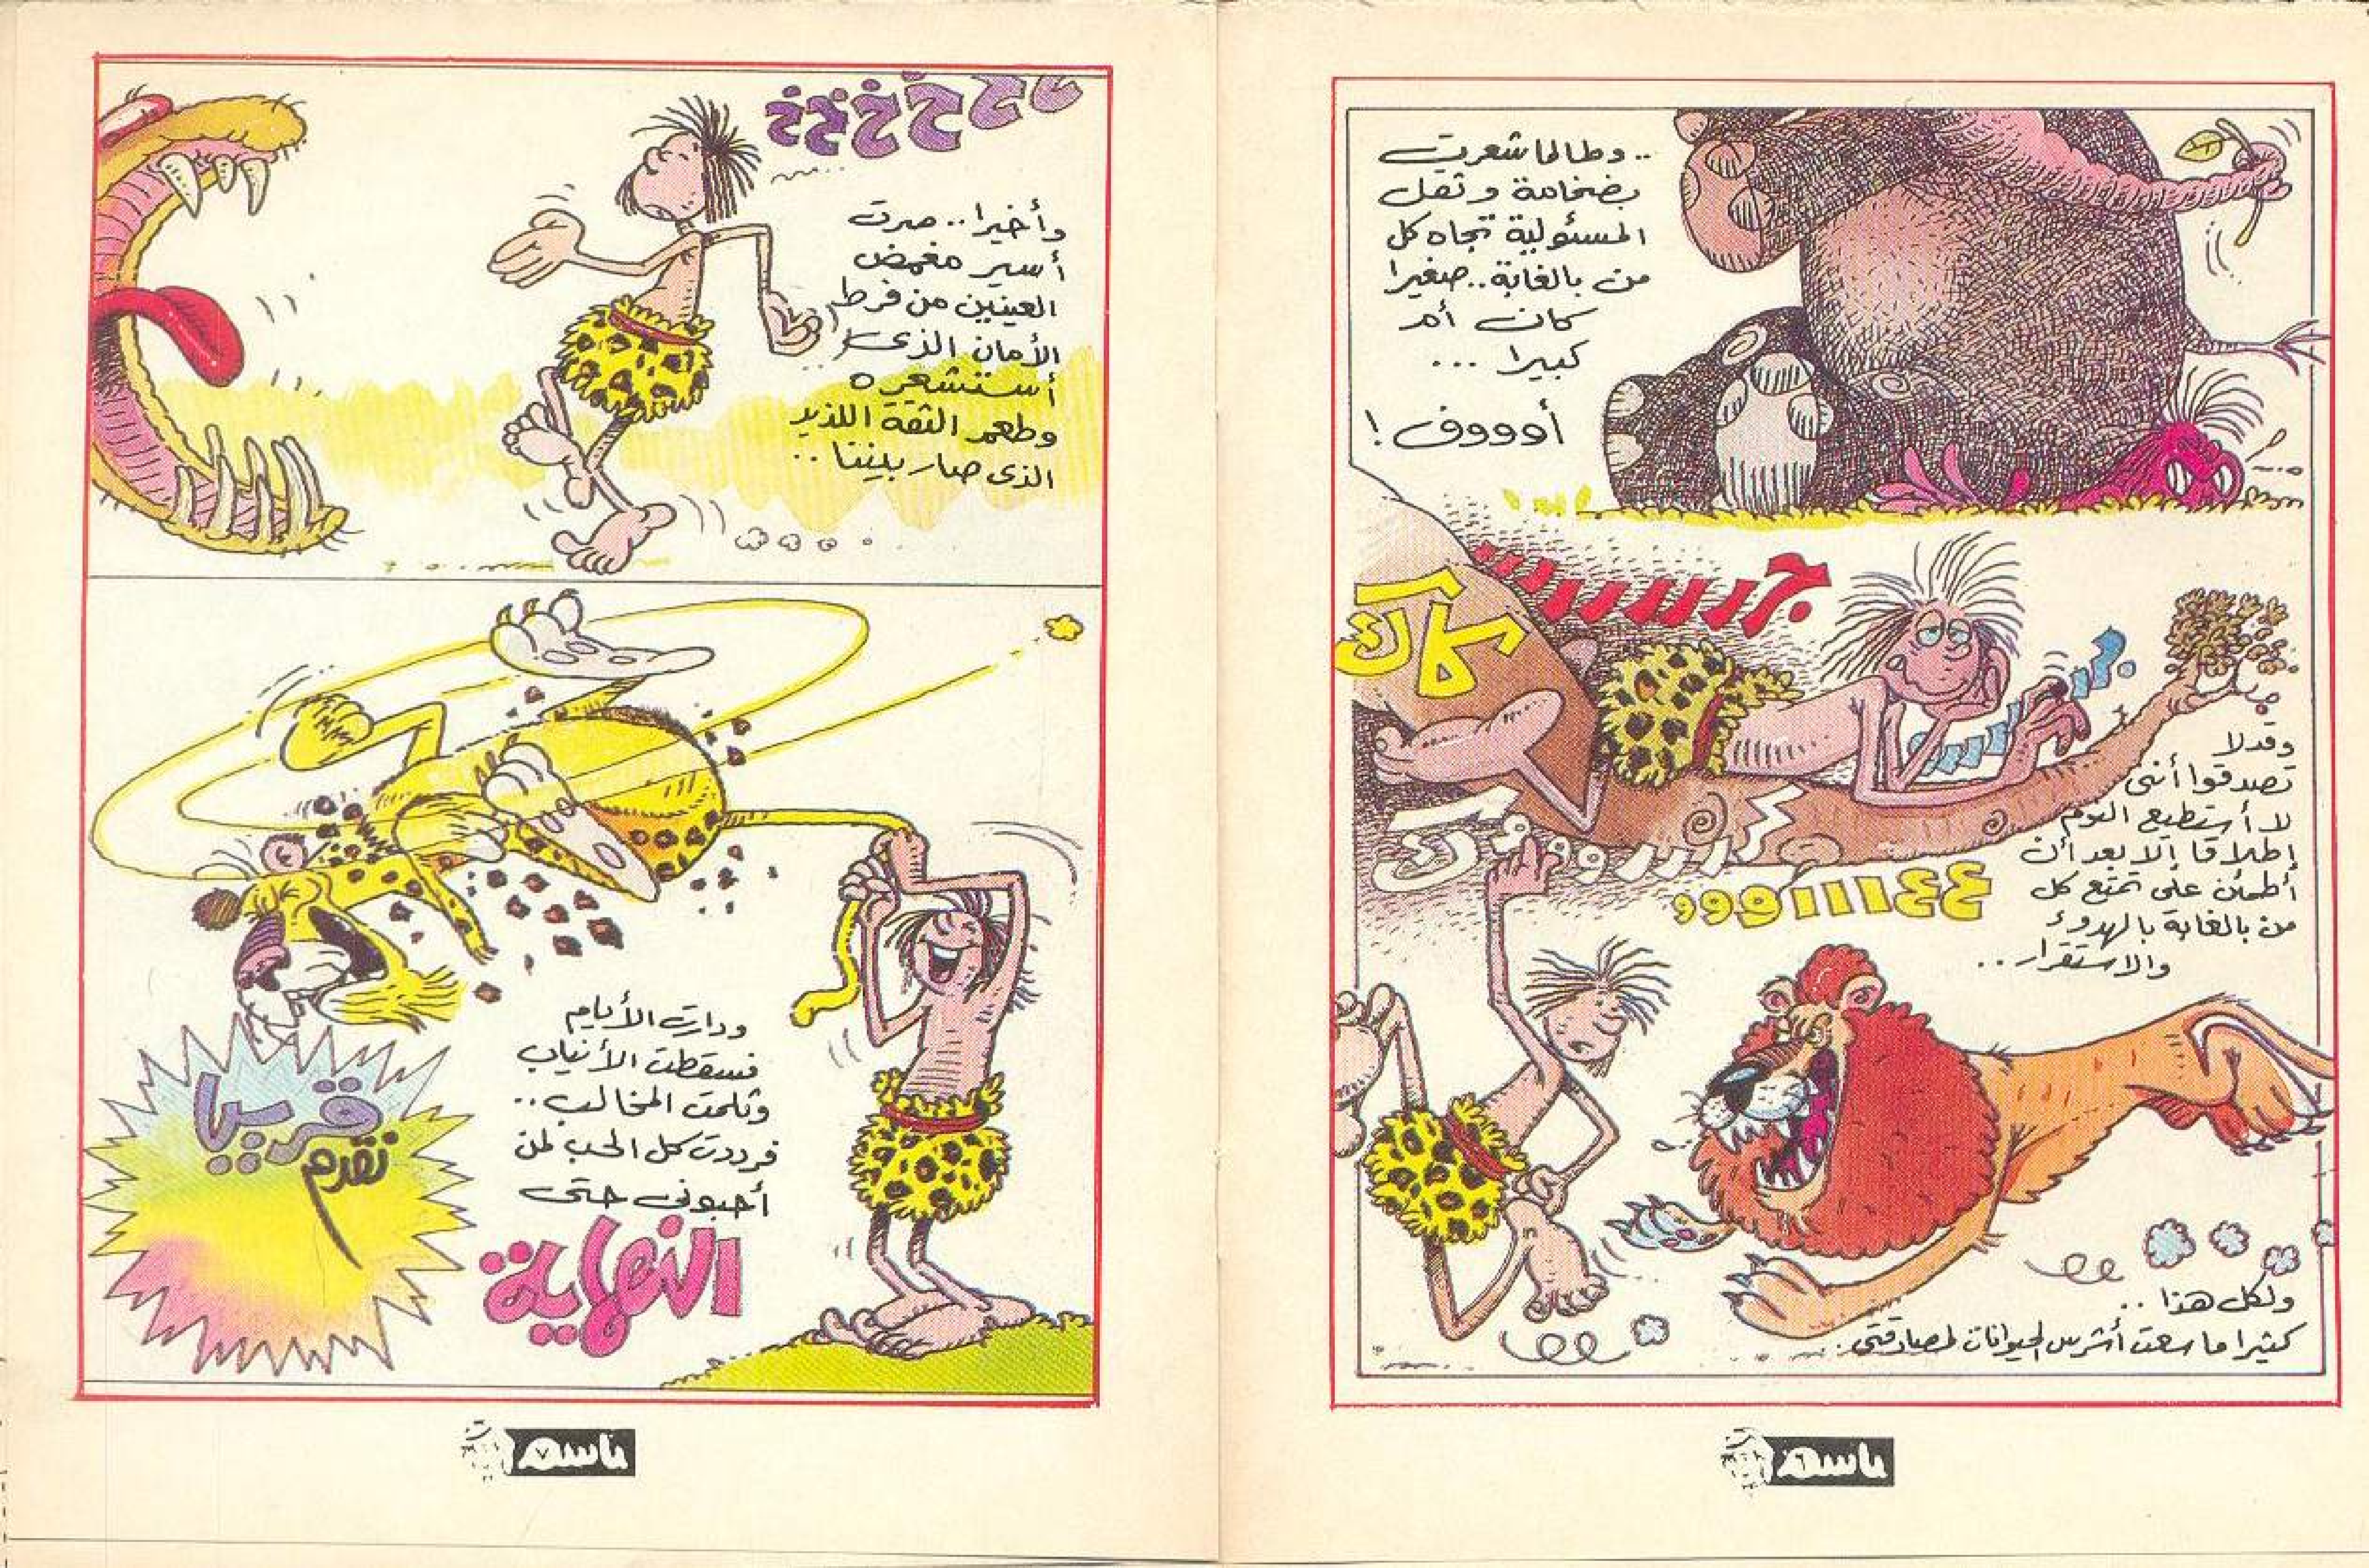 .. وطالما شعرت
بضخامة وثقل
المسئولية تجاه كل
من بالغابة.. صغيرا
كان أم
كبيرا ...
أوووف !
جررررررر
كاك
وقد لا
تصدقوا أننى
لا أستطيع النوم
إطلاقا إلا بعد أن
أطمئن على تمتع كل
من بالغابة بالهدوء
والاستقرار ..
ولكل هذا ..
كثيرا ما سعت أشرس الحيوانات لمصادقتى ..
باسم
خخخخخخخ
وأخيرا .. صرت
أسير مغمض
العينين من فرط
الأمان الذى
أستشعره
وطعم الثقة اللذيذ
الذى صار بيننا ..
ودارت الأيام
فسقطت الأنياب
وثلمت المخالب ..
فرددت كل الحب لمن
أحبونى حتى
النهاية
قريبا
نقدم
باسم